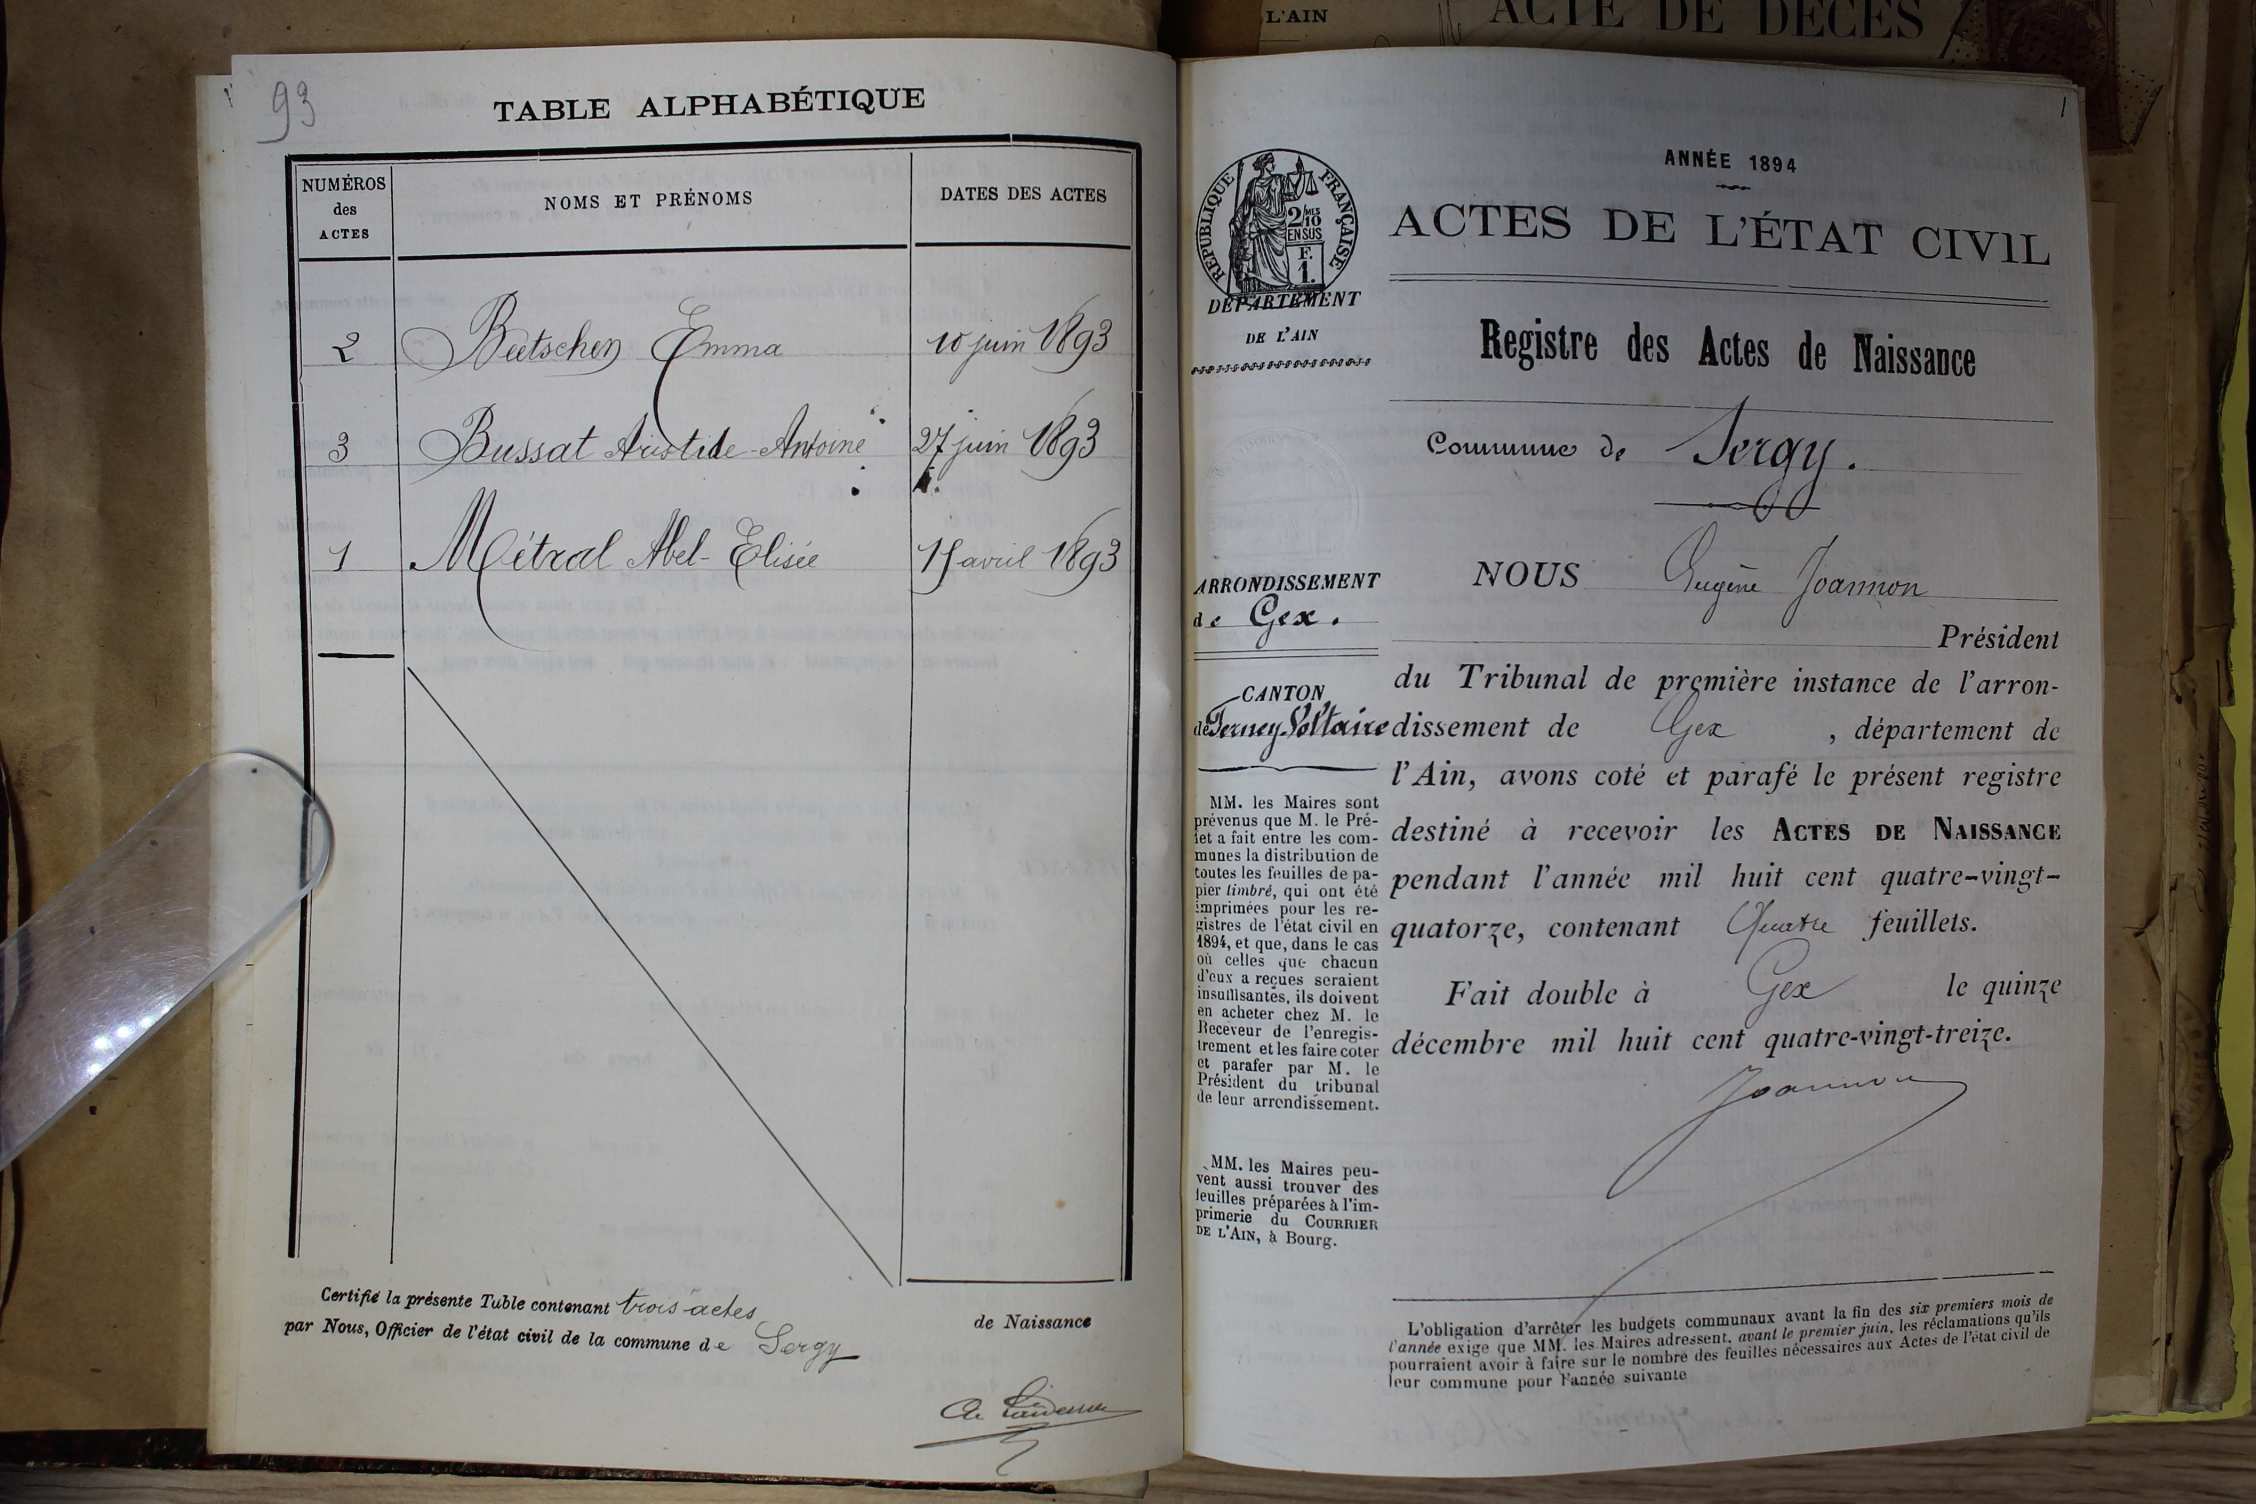 L'AIN
ACTE DE DÉCÈS
93
TABLE ALPHABÉTIQUE
NUMÉROS
des
ACTES
NOMS ET PRÉNOMS
DATES DES ACTES
2 Bœtschen Emma 10 juin 1893
3 Bussat Aristide-Antoine 27 juin 1893
1 Métral Abel-Elisée 15 avril 1893
Certifié la présente Table contenant trois actes
de Naissance
par Nous, Officier de l'état civil de la commune de Sergy
1
RÉPUBLIQUE FRANÇAISE
2/MES
10
EN SUS
F.
1.
DÉPARTEMENT
DE L'AIN
ARRONDISSEMENT
de Gex.
CANTON
de Ferney-Voltaire
MM. les Maires sont
prévenus que M. le Pré-
fet a fait entre les com-
munes la distribution de
toutes les feuilles de pa-
pier timbré, qui ont été
imprimées pour les re-
gistres de l'état civil en
1894, et que, dans le cas
où celles que chacun
d'eux a reçues seraient
insuffisantes, ils doivent
en acheter chez M. le
Receveur de l'enregis-
trement et les faire coter
et parafer par M. le
Président du tribunal
de leur arrondissement.
MM. les Maires peu-
vent aussi trouver des
feuilles préparées à l'im-
primerie du COURRIER
DE L'AIN, à Bourg.
ANNÉE 1894
ACTES DE L'ÉTAT CIVIL
Registre des Actes de Naissance
Commune de Sergy.
NOUS Eugène Joannon
Président
du Tribunal de première instance de l'arron-
dissement de Gex, département de
l'Ain, avons coté et parafé le présent registre
destiné à recevoir les ACTES DE NAISSANCE
pendant l'année mil huit cent quatre-vingt-
quatorze, contenant Quatre feuillets.
Fait double à Gex le quinze
décembre mil huit cent quatre-vingt-treize.
Joannon
L'obligation d'arrêter les budgets communaux avant la fin des six premiers mois de
l'année exige que MM. les Maires adressent, avant le premier juin, les réclamations qu'ils
pourraient avoir à faire sur le nombre des feuilles nécessaires aux Actes de l'état civil de
leur commune pour l'année suivante